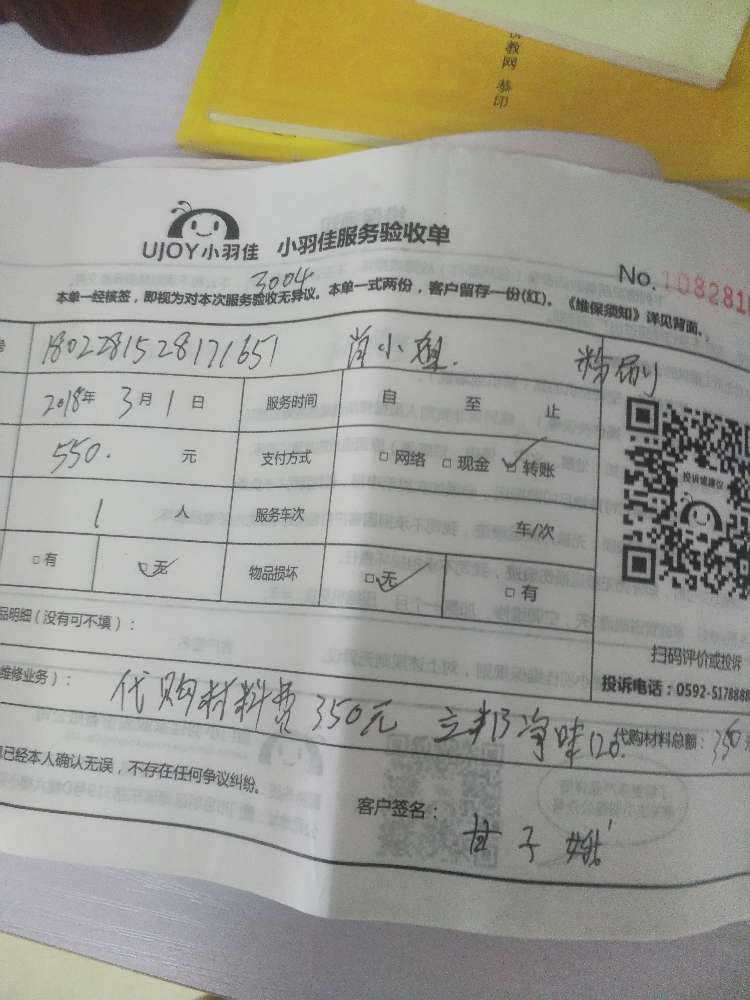 教网 恭印
UJOY小羽佳 小羽佳服务验收单
No.1082810
3004
本单一经核签，即视为对本次服务验收无异议。本单一式两份，客户留存一份(红)。《维保须知》详见背面。
18022815 28171651 肖小姐. 粉刷
2018年 3月 1日 服务时间 自 至 止
550. 元 支付方式 □网络 □现金 □转账
1 人 服务车次 车/次
□有 □无 物品损坏 □无 □有
投诉或建议
扫码评价或投诉
投诉电话：0592-5178888
品明细（没有可不填）：
维修业务）： 代购材料费350元 立邦净味120 代购材料总额：350
已经本人确认无误，不存在任何争议纠纷。
客户签名： 子娥